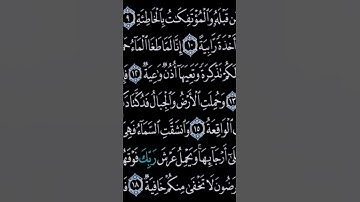 ن قَبْلَهُۥ وَٱلْمُؤْتَفِكَٰتُ بِٱلْخَاطِئَةِ ٩
أَخْذَةً رَّابِيَةً ١٠ إِنَّا لَمَّا طَغَا ٱلْمَآءُ حَمَ
لَكُمْ تَذْكِرَةً وَتَعِيَهَآ أُذُنٌ وَٰعِيَةٌ ١٢ فَ
١٣ وَحُمِلَتِ ٱلْأَرْضُ وَٱلْجِبَالُ فَدُكَّتَا دَ
ٱلْوَاقِعَةُ ١٥ وَٱنشَقَّتِ ٱلسَّمَآءُ فَهِىَ
لَىٰٓ أَرْجَآئِهَا وَيَحْمِلُ عَرْشَ رَبِّكَ فَوْقَهُ
رَضُونَ لَا تَخْفَىٰ مِنكُمْ خَافِيَةٌ ١٨ فَ